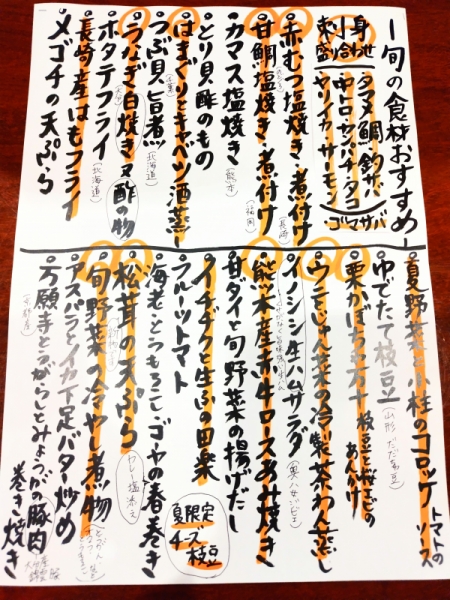 旬の食材おすすめ
刺身
小
盛り合わせ
タマメ鯛 釣サバ
中トロ カンパチ タコ
ヤリイカ サーモン
ゴマサバ
赤むつ塩焼き・煮付け
(長崎)
甘鯛塩焼き・煮付け
(福岡)
カマス塩焼き
(熊本)
とり貝酢のもの
はまぐりとキャベツ酒蒸し
(千葉)
つぶ貝旨煮
(北海道)
うなぎ白焼き又酢の物
ホタテフライ
(北海道)
長崎産はもフライ
メゴチの天ぷら
夏野菜と小柱のコロッケ
トマトのソース
ゆでたて枝豆
(山形 だだ茶豆)
栗かぼちゃ万十
枝豆と桜エビのあんかけ
ウニじゅん菜の冷製茶わん蒸し
イノシシ生ハムサラダ
熊本産赤牛ロースあみ焼き
甘ダイと旬野菜の揚げだし
イチヂクと生ふ田楽
フルーツトマト
夏限定
チーズ枝豆
海老とうもろこし・ゴーヤの春巻き
松茸の天ぷら
カレー塩添え
旬野菜の冷やし煮物
アスパラとイカ下足バター炒め
万願寺とうがらしとみょうがの豚肉巻き焼き
(京都産)